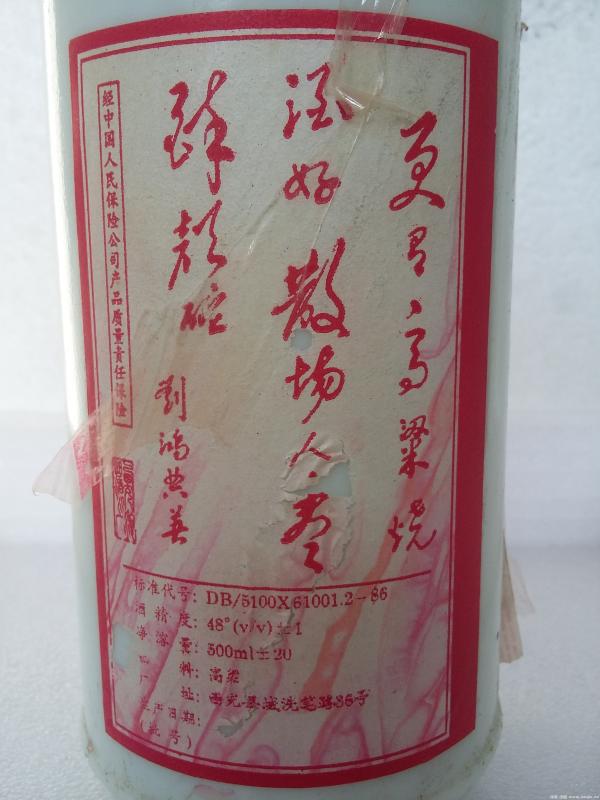 更有高粱烧
酒好散场人尽
醉颜酡
劉鴻典義
经中国人民保险公司产品质量责任保险
标准代号: DB/5100X61001.2-86
酒精度: 48°(v/v)±1
净溶量: 500ml±20
料: 高粱
厂址: 西充县城洗笔路36号
生产日期:
(批号)